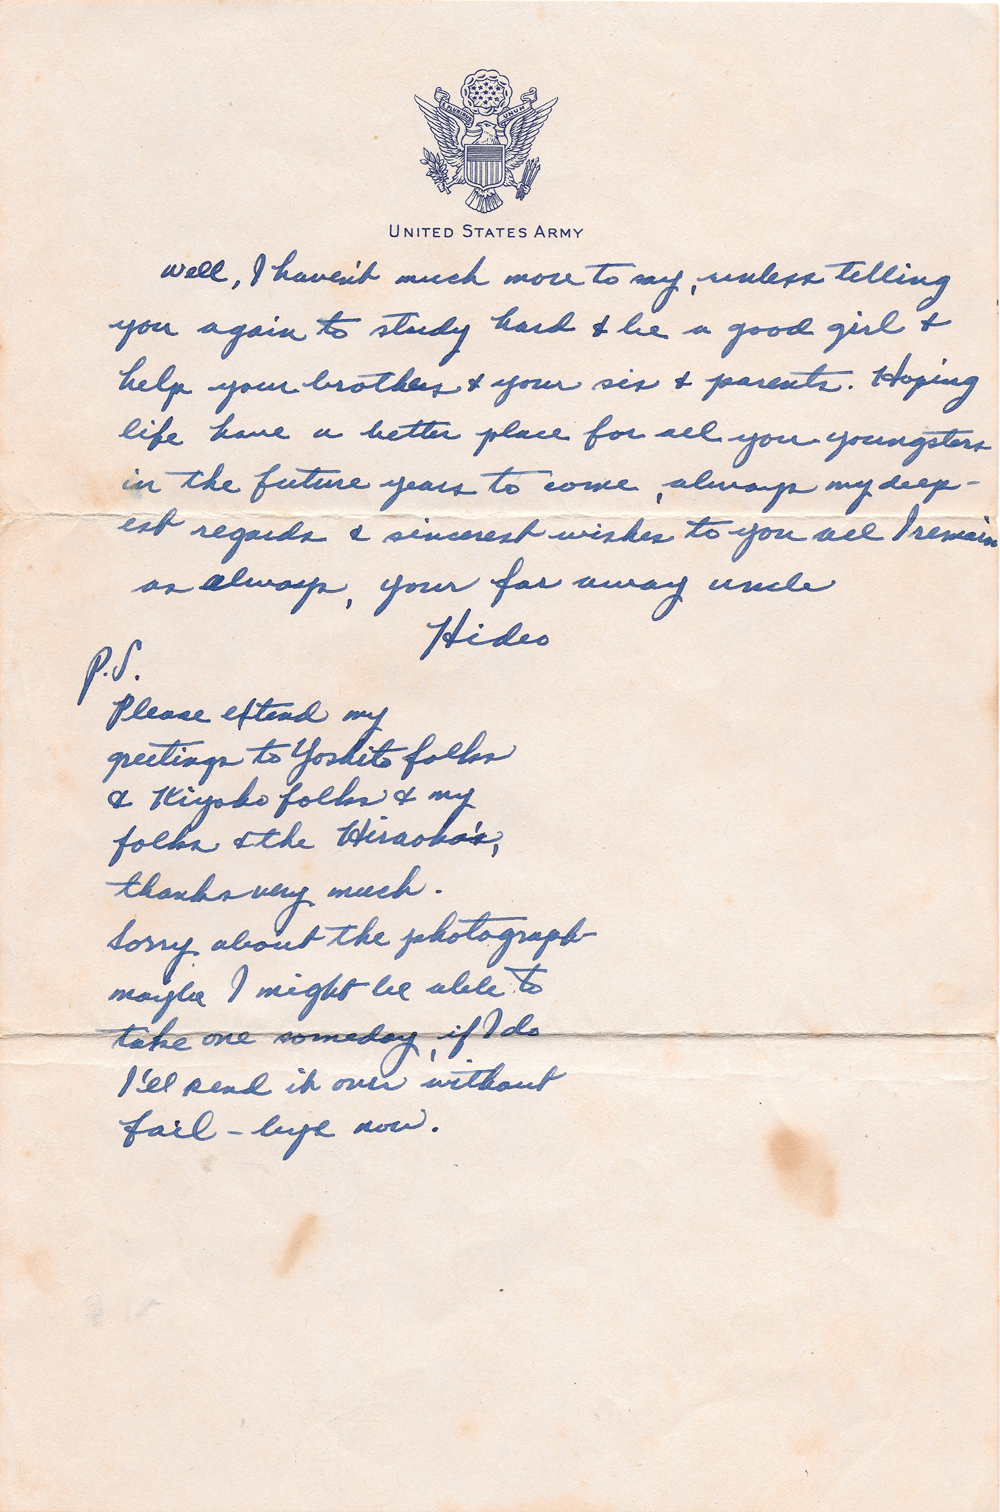 E PLURIBUS UNUM
UNITED STATES ARMY
Well, I haven't much more to say, unless telling
you again to study hard & be a good girl &
help your brothers & your sis & parents. Hoping
life have a better place for all you youngsters
in the future years to come, always my deep-
est regards & sincerest wishes to you all I remain
as always, your far away uncle
Hideo
P.S.
Please extend my
greetings to Yoshito folks
& Kiyoko folks & my
folks & the Hiraoka's,
thanks very much.
Sorry about the photograph-
maybe I might be able to
take one someday, if I do
I'll send it over without
fail - bye now.